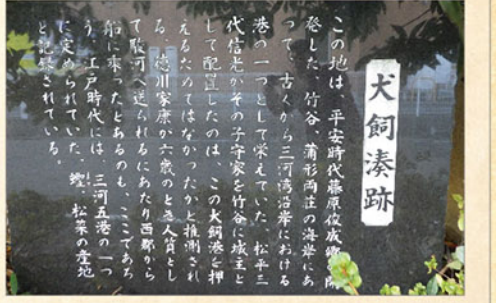 犬飼湊跡
この地は、平安時代藤原俊成卿の開
発した、竹谷、蒲形両荘の海岸にあ
って、古くから三河湾沿岸における
港の一つとして栄えていた。松平三
代信光がその子守家を竹谷に城主と
して配置したのは、この犬飼港を押
えるためてはなかったかと推測され
る。徳川家康か六歳のとき人質とし
て駿河へ送られるにあたり西郡から
船に乘ったとあるのも、ここであろ
う。江戸時代には、三河五港の一つ
に定められていた。鰹、松菜の産地
と記録されている。